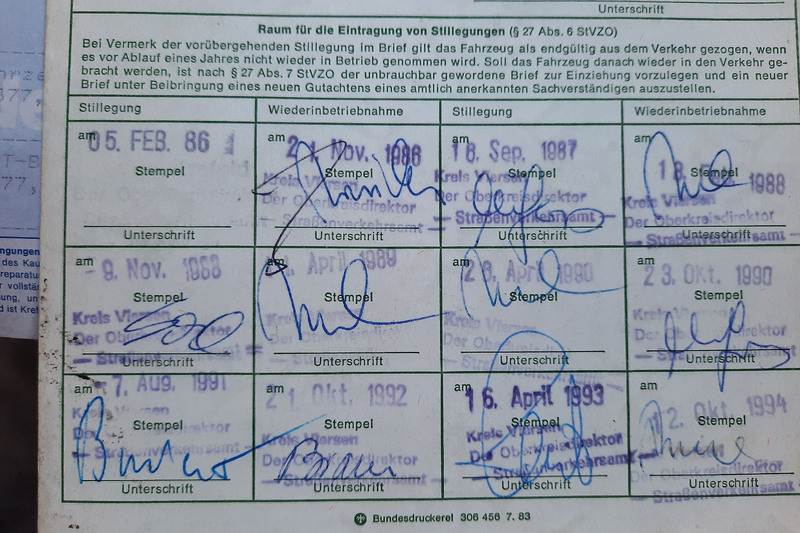 Unterschrift
Raum für die Eintragung von Stillegungen (§ 27 Abs. 6 StVZO)
Bei Vermerk der vorübergehenden Stillegung im Brief gilt das Fahrzeug als endgültig aus dem Verkehr gezogen, wenn
es vor Ablauf eines Jahres nicht wieder in Betrieb genommen wird. Soll das Fahrzeug danach wieder in den Verkehr ge-
bracht werden, ist nach § 27 Abs. 7 StVZO der unbrauchbar gewordene Brief zur Einziehung vorzulegen und ein neuer
Brief unter Beibringung eines neuen Gutachtens eines amtlich anerkannten Sachverständigen auszustellen.
Stillegung Wiederinbetriebnahme Stillegung Wiederinbetriebnahme
am 05. FEB. 86
Stempel
Unterschrift
am Nov. 1986
Stempel
Kreis Viersen
Der Oberkreisdirektor
— Straßenverkehrsamt —
Unterschrift
am 18. Sep. 1987
Stempel
Kreis Viersen
Der Oberkreisdirektor
— Straßenverkehrsamt —
Unterschrift
am 1988
Stempel
Kreis Viersen
Der Oberkreisdirektor
— Straßenverkehrsamt —
Unterschrift
am - 9. Nov. 1988
Stempel
Kreis Viersen
Der Oberkreisdirektor
Unterschrift
am April 1989
Stempel
Kreis Viersen
Der Oberkreisdirektor
Unterschrift
am April 1990
Stempel
Kreis Viersen
Der Oberkreisdirektor
Unterschrift
am 23. Okt. 1990
Stempel
Kreis Viersen
Der Oberkreisdirektor
— Straßenverkehrsamt —
Unterschrift
am - 7. Aug. 1991
Stempel
Kreis Viersen
— Straßenverkehrsamt —
Unterschrift
am Okt. 1992
Stempel
Kreis Viersen
Der Oberkreisdirektor
— Straßenverkehrsamt —
Unterschrift
am 16. April 1993
Stempel
Kreis Viersen
Der Oberkreisdirektor
— Straßenverkehrsamt —
Unterschrift
am 12. Okt. 1994
Stempel
Kreis Viersen
Der Oberkreisdirektor
— Straßenverkehrsamt —
Unterschrift
Bundesdruckerei 306 456 7. 83